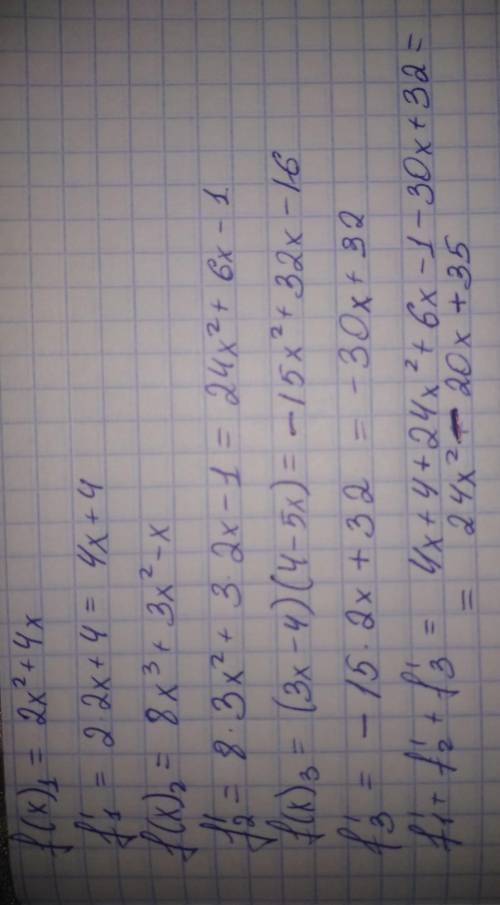 f(x)₁ = 2x² + 4x
f₁' = 2·2x + 4 = 4x + 4
f(x)₂ = 8x³ + 3x² - x
f₂' = 8·3x² + 3·2x - 1 = 24x² + 6x - 1
f(x)₃ = (3x - 4)(4 - 5x) = -15x² + 32x - 16
f₃' = -15·2x + 32 = -30x + 32
f₁' + f₂' + f₃' = 4x + 4 + 24x² + 6x - 1 - 30x + 32 =
= 24x² - 20x + 35